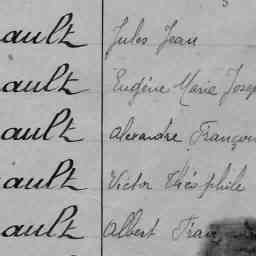 ault Jules Jean
ault Eugène Marie Josep
ault Alexandre Françoi
ault Victor Théophile
ault Albert Fran